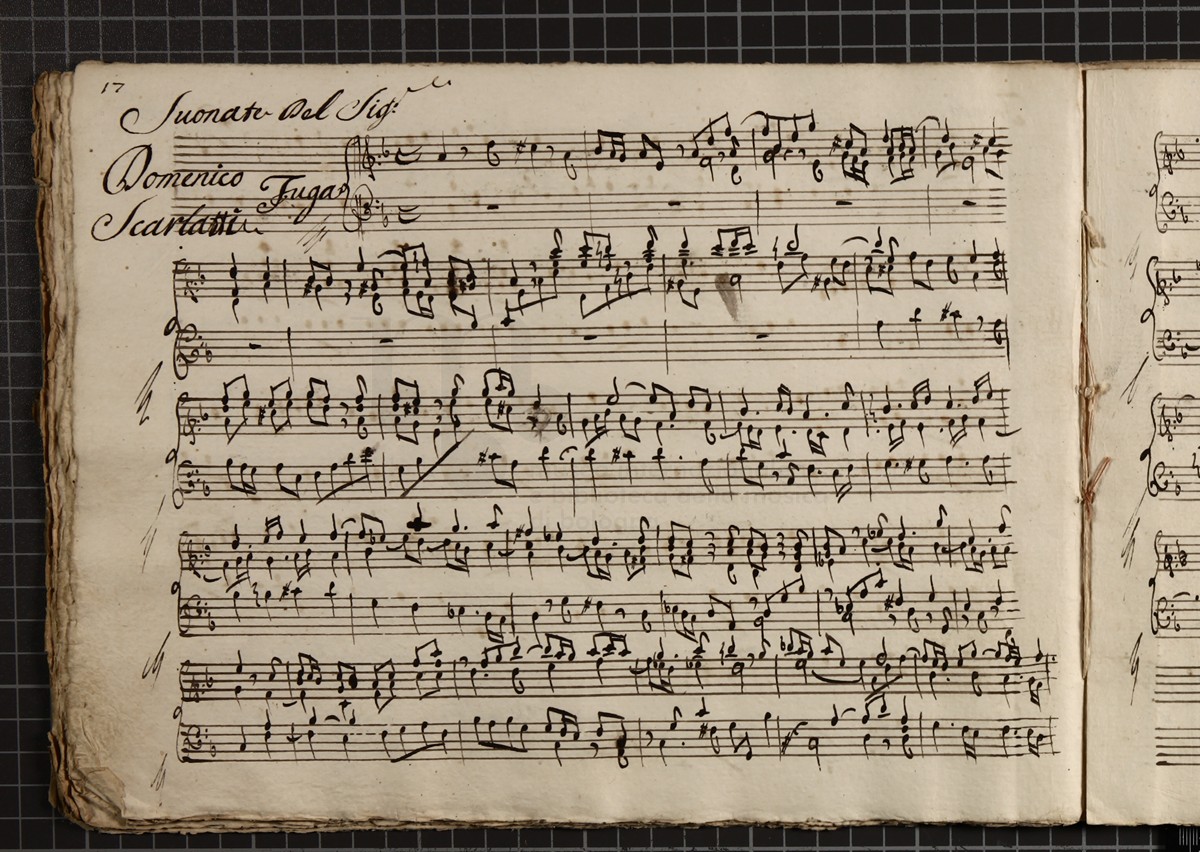 17
Suonate Del Sig:re
Domenico
Fuga
Scarlatti